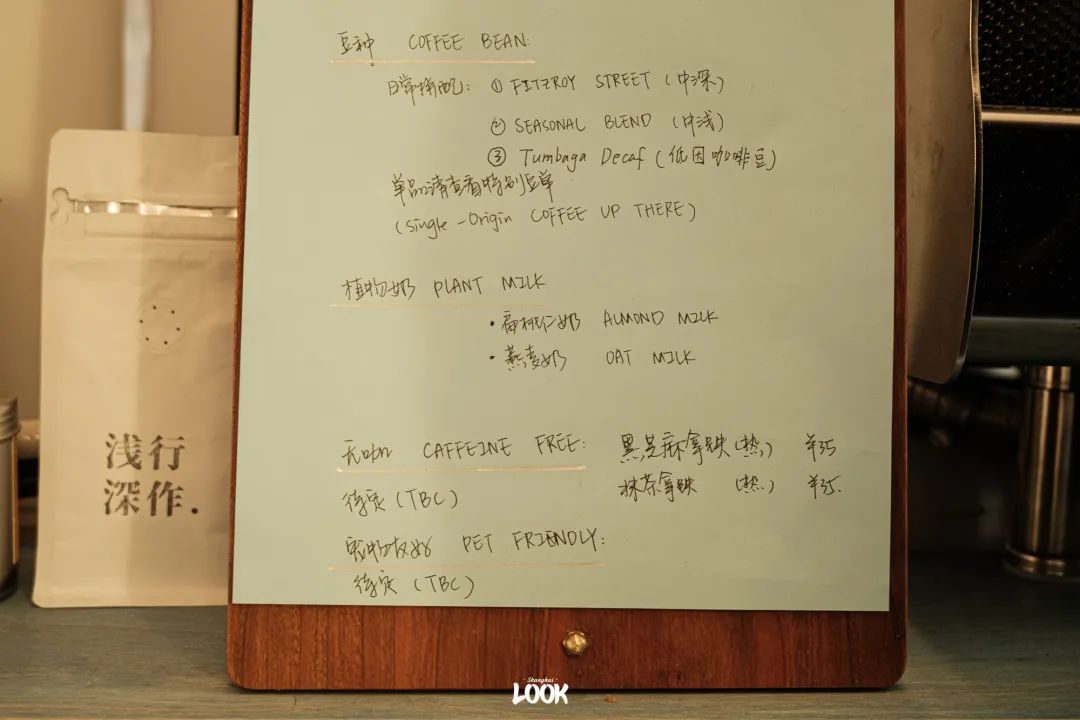 豆种 COFFEE BEAN:
日常拼配: ① FITZROY STREET (中深)
② SEASONAL BLEND (中浅)
③ Tumbaga Decaf (低因咖啡豆)
单品请查看特别豆单
(Single-Origin COFFEE UP THERE)
植物奶 PLANT MILK
·扁桃仁奶 ALMOND MILK
·燕麦奶 OAT MILK
无咖 CAFFEINE FREE: 黑芝麻拿铁(热) ¥35
待定(TBC) 抹茶拿铁 (热) ¥35.
宠物友好 PET FRIENDLY:
待定 (TBC)
浅行
深作.
Shanghai
LOOK